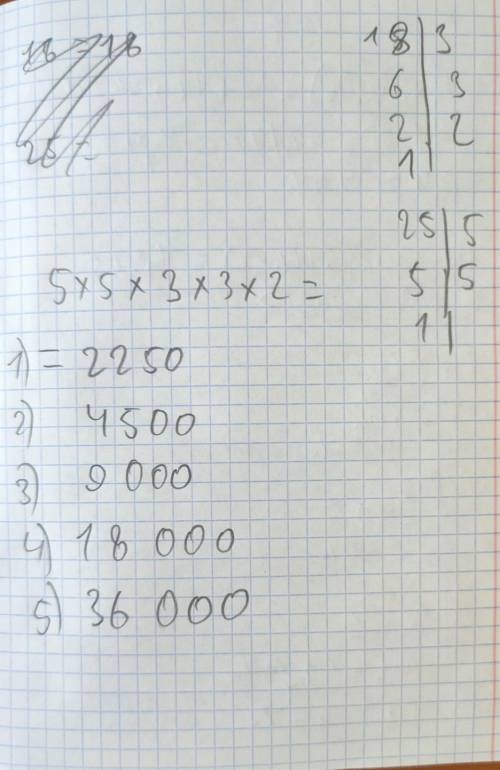 18 | 3
6 | 3
2 | 2
1 |
25 | 5
5 | 5
1 |
5 × 5 × 3 × 3 × 2 =
1) = 2250
2) 4500
3) 9000
4) 18 000
5) 36 000